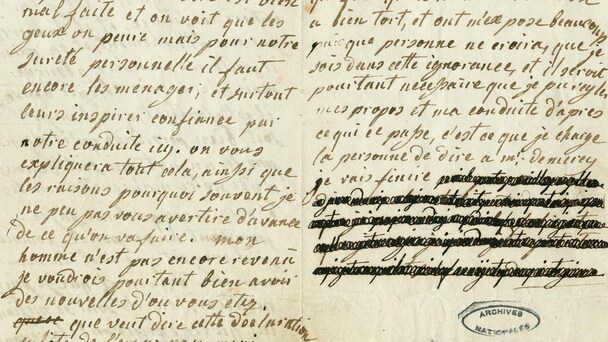 mal faite et on voit que les
geux on peure mais pour notre
sureté personnelle il faut
encore les menager, et surtout
leurs inspirer confiance par
notre conduite icy. on vous
expliquera tout cela, ainsi que
les raisons pourquoi souvent je
ne peu pas vous avertire d'avance
de ce qu'on va faire. mon
homme n'est pas encore revenu
je voudrois pourtant bien avoir
des nouvelles d'ou vous étez.
que veut dire cette
a bien tort, et ont m'expose beaucoup
puisque personne ne croira, que je
sois dans cette ignorance, et il seroit
pourtant nécessaire que je
mes propos et ma conduite d'apres
ce qui ce passe, c'est ce que je charge
la personne de dire a mr. demercy
je vais finire
ARCHIVES
NATIONALES